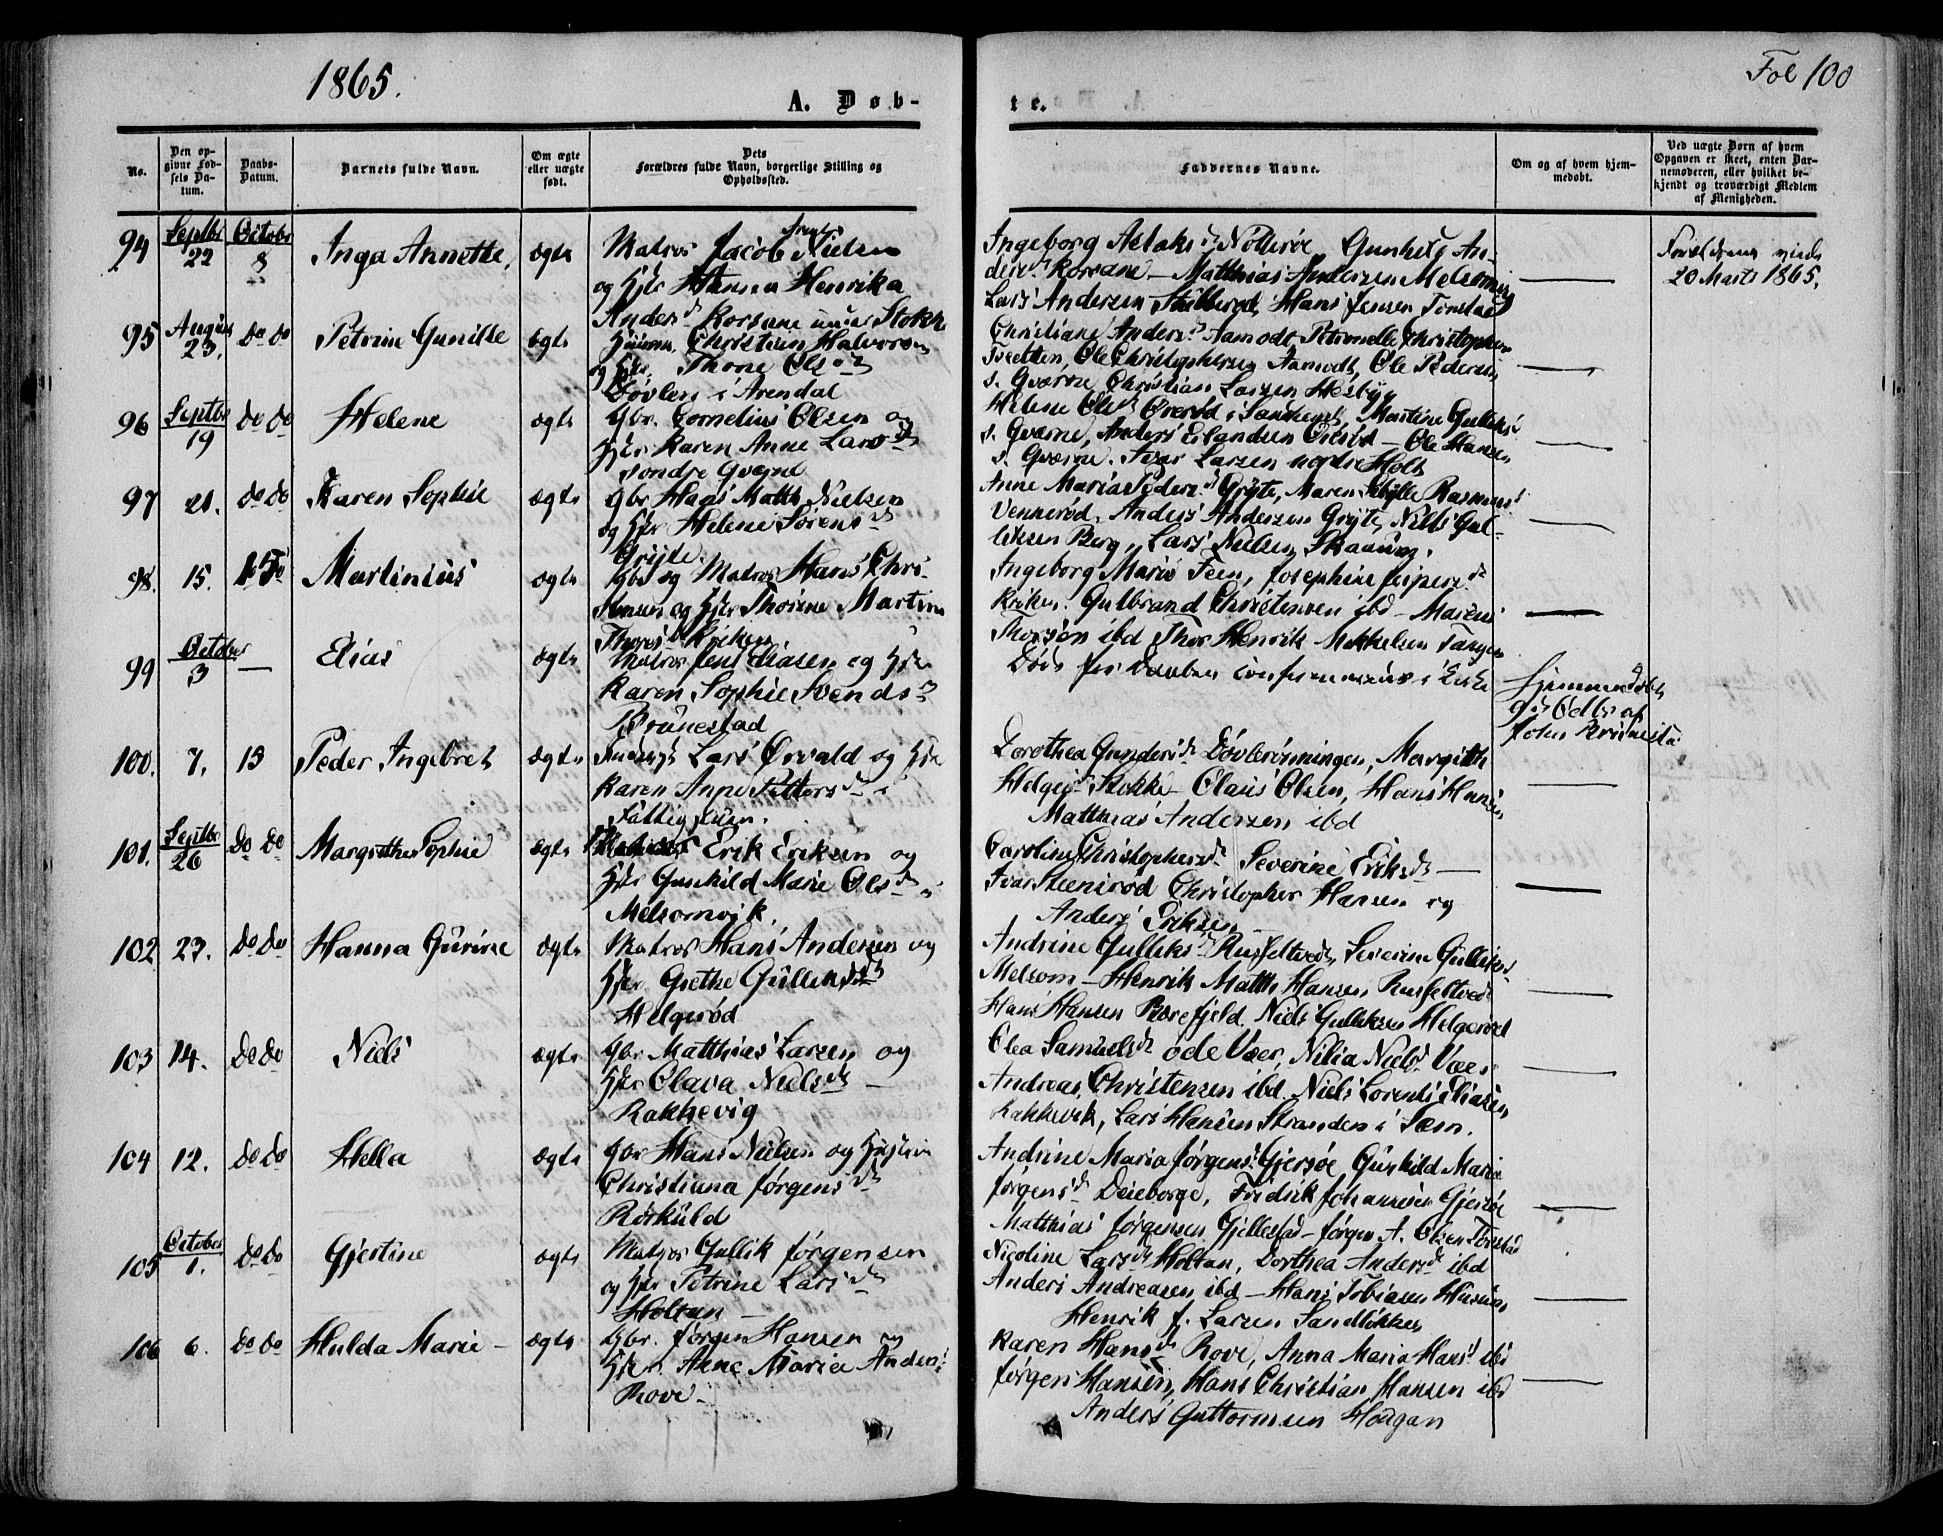 1865.
Fol 100
A. Døb-
te.
No.
Den op-
givne Fød-
sels Da-
tum.
Daabs-
Datum.
Barnets fulde Navn.
Om ægte
eller uægte
født.
Dets
Forældres fulde Navn, borgerlige Stilling og
Opholdssted.
Faddernes Navne.
Om og af hvem hjem-
medøbt.
Ved uægte Børn af hvem
Opgaven er skeet, enten Bar-
nemoderen, eller hvilket be-
kjendt og troværdigt Medlem
af Menigheden.
94 Septbr 22 October 8 Inga Annette, ægte Matros Jacob Nielsen
og Hanna Henrika
Anders Korsane under Stokke
Ingeborg Nøtterøe, Gunhild An-
Korsane - Matthias Andersen Melsomvig
Lars Andersen Hans Jensen Tønstad
20 Marts 1865.
95 August 23. do do Petrine Gunilde ægte Christian Halvorsen
og Thone Ols d
i Arendal
Christiane Anders Aamodt, Petronelle Christophers
Tveitten, Ole Christophersen Aamodt, Ole Pedersen
s. Gværne Christian Larsen Hesby
96 Septbr 19 do do Helene ægte Gbr. Cornelius Olsen og
Karen Anne Lars d
søndre Gverne
Helene Ols Martine Gulliks
s. Gværne, Anders Erlandsen - Ole Hansen
s. Gværne. Ivar Larsen nordre Holt
97 21. do do Karen Sophie ægte Gbr Hans Matth Nielsen
og Helene Sørens d
Gryte
Anne Maria Peders Gryte, Maren Sibylle Rasmus
Vennerød, Anders Andersen Gryte, Niels Gul-
liksen Berg, Lars Nielsen Skaaum.
98. 15. Martinius ægte Gbr og Matros Hans Chri-
stensen og Thorine Martine
Thors
Ingeborg Marie Feen, Josephine Jespers d
Gulbrand Christensen ibd - Marens
Thorsøn ibd Thor Henrik Mikkelsen Tangen
99 October 3 — Elias ægte Matros Jens Eliasen og
Karen Sophie Svends d
Brunestad
Død før Daaben
Hjemmedøbt
af
100. 7. 15 Peder Ingebret ægte Lars Ørvald og
Karen Anne Petters d i
Fattighuus.
Dorothea Gunders d Margith
Helges Stokke - Olaus Olsen, Hans Hansen
Matthias Andersen ibd
101. Septbr 26 do do Margrethe Sophie ægte Erik Eriksen og
Gunhild Marie Ols d i
Melsomvik.
Caroline Christophers d Severine Eriks d —
Ivar Steenrød Christopher Hansen og
Anders Eriksen
102 23. do do Hanna Gurine ægte Matros Hans Andersen og
Grethe Gulliks d
Helgerød
Andrine Gulliks d Russeltvedt, Severine Gulliks d
Melsom - Henrik Matth Hansen Russeltvedt
Hans Hansen Bærefjeld. Niels Gulliksen Helgerød
103 14. do do Niels ægte Gbr Matthias Larsen og
Olava Niels d —
Rakkevig
Olea Samuels d øde Vær, Nilia Niels d Vær
Andreas Christensen ibd. Niels Lorents Eliasen
Rakkevik, Lars Hansen Stranden i Sæm.
104 12. do do Hella ægte Gbr Hans Nielsen og
Christiana Jørgens d
Rørkuld
Andrine Maria Jørgens d Gjersøe, Gunhild Marie
Jørgens d Fredrik Johannesen Gjersøe
Matthias Jørgensen Gjellestad - Jørgen A. Olsen Tønstad
105 October 1. do do Gjertine ægte Matros Gullik Jørgensen
og Petrine Lars d
Holtan
Nicoline Lars d Holtan, Dorthea Anders d ibd
Anders Andreasen ibd - Hans Tobiasen
Henrik J. Larsen Sandløkken
106 6. do do Hulda Marie - ægte Gbr. Jørgen Hansen og
Anne Maria Anders d
Rove -
Karen Hans d Rove, Anna Maria Hans d ibd
Jørgen Hansen, Hans Christian Hansen ibd
Anders Guttormsen Hougan